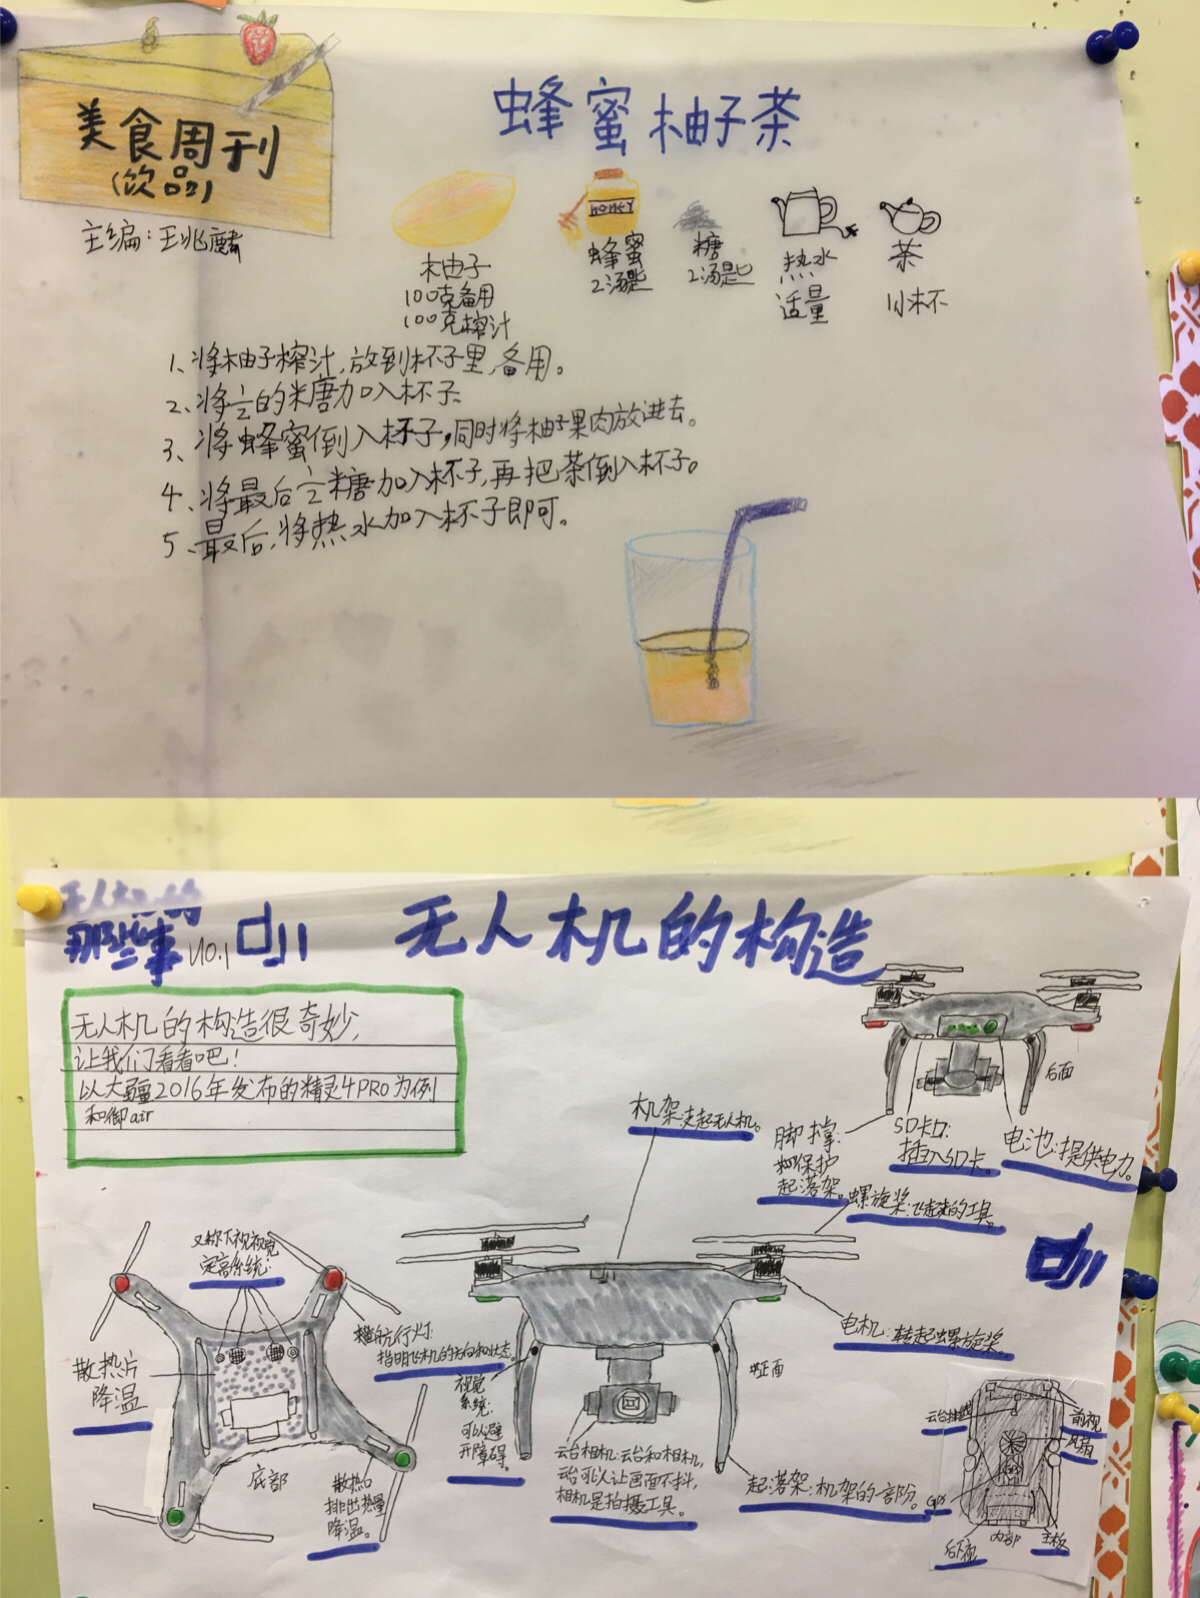 美食周刊
(饮品)
主编:王兆麟
蜂蜜柚子茶
柚子
100克备用
100克榨汁
HONEY
蜂蜜
2汤匙
糖
2汤匙
热水
适量
茶
1小杯
1、将柚子榨汁,放到杯子里,备用。
2、将½的糖加入杯子
3、将蜂蜜倒入杯子,同时将柚子果肉放进去。
4、将最后½糖加入杯子,再把茶倒入杯子。
5、最后,将热水加入杯子即可。
无人机的
那些事 V0.1
dji
无人机的构造
无人机的构造很奇妙,
让我们看看吧!
以大疆2016年发布的精灵4PRO为例
和御air
后面
机架:支起无人机。
脚撑:
保护
起落架。
SD卡口:
插入SD卡。
电池:提供电力。
螺旋桨:飞起来的工具。
dji
又称下视视觉
定高系统:
航行灯:
指明飞机的方向和状态。
散热片
降温
底部
散热口
排出热量
降温。
视觉
系统:
可以避
开障碍。
云台相机:云台和相机,
云台可以让画面不抖,
相机是拍摄工具。
正面
电机:转起螺旋桨。
起落架:机架的一部份。
云台排线
前视
风扇
GPS
后下视
内部
主板